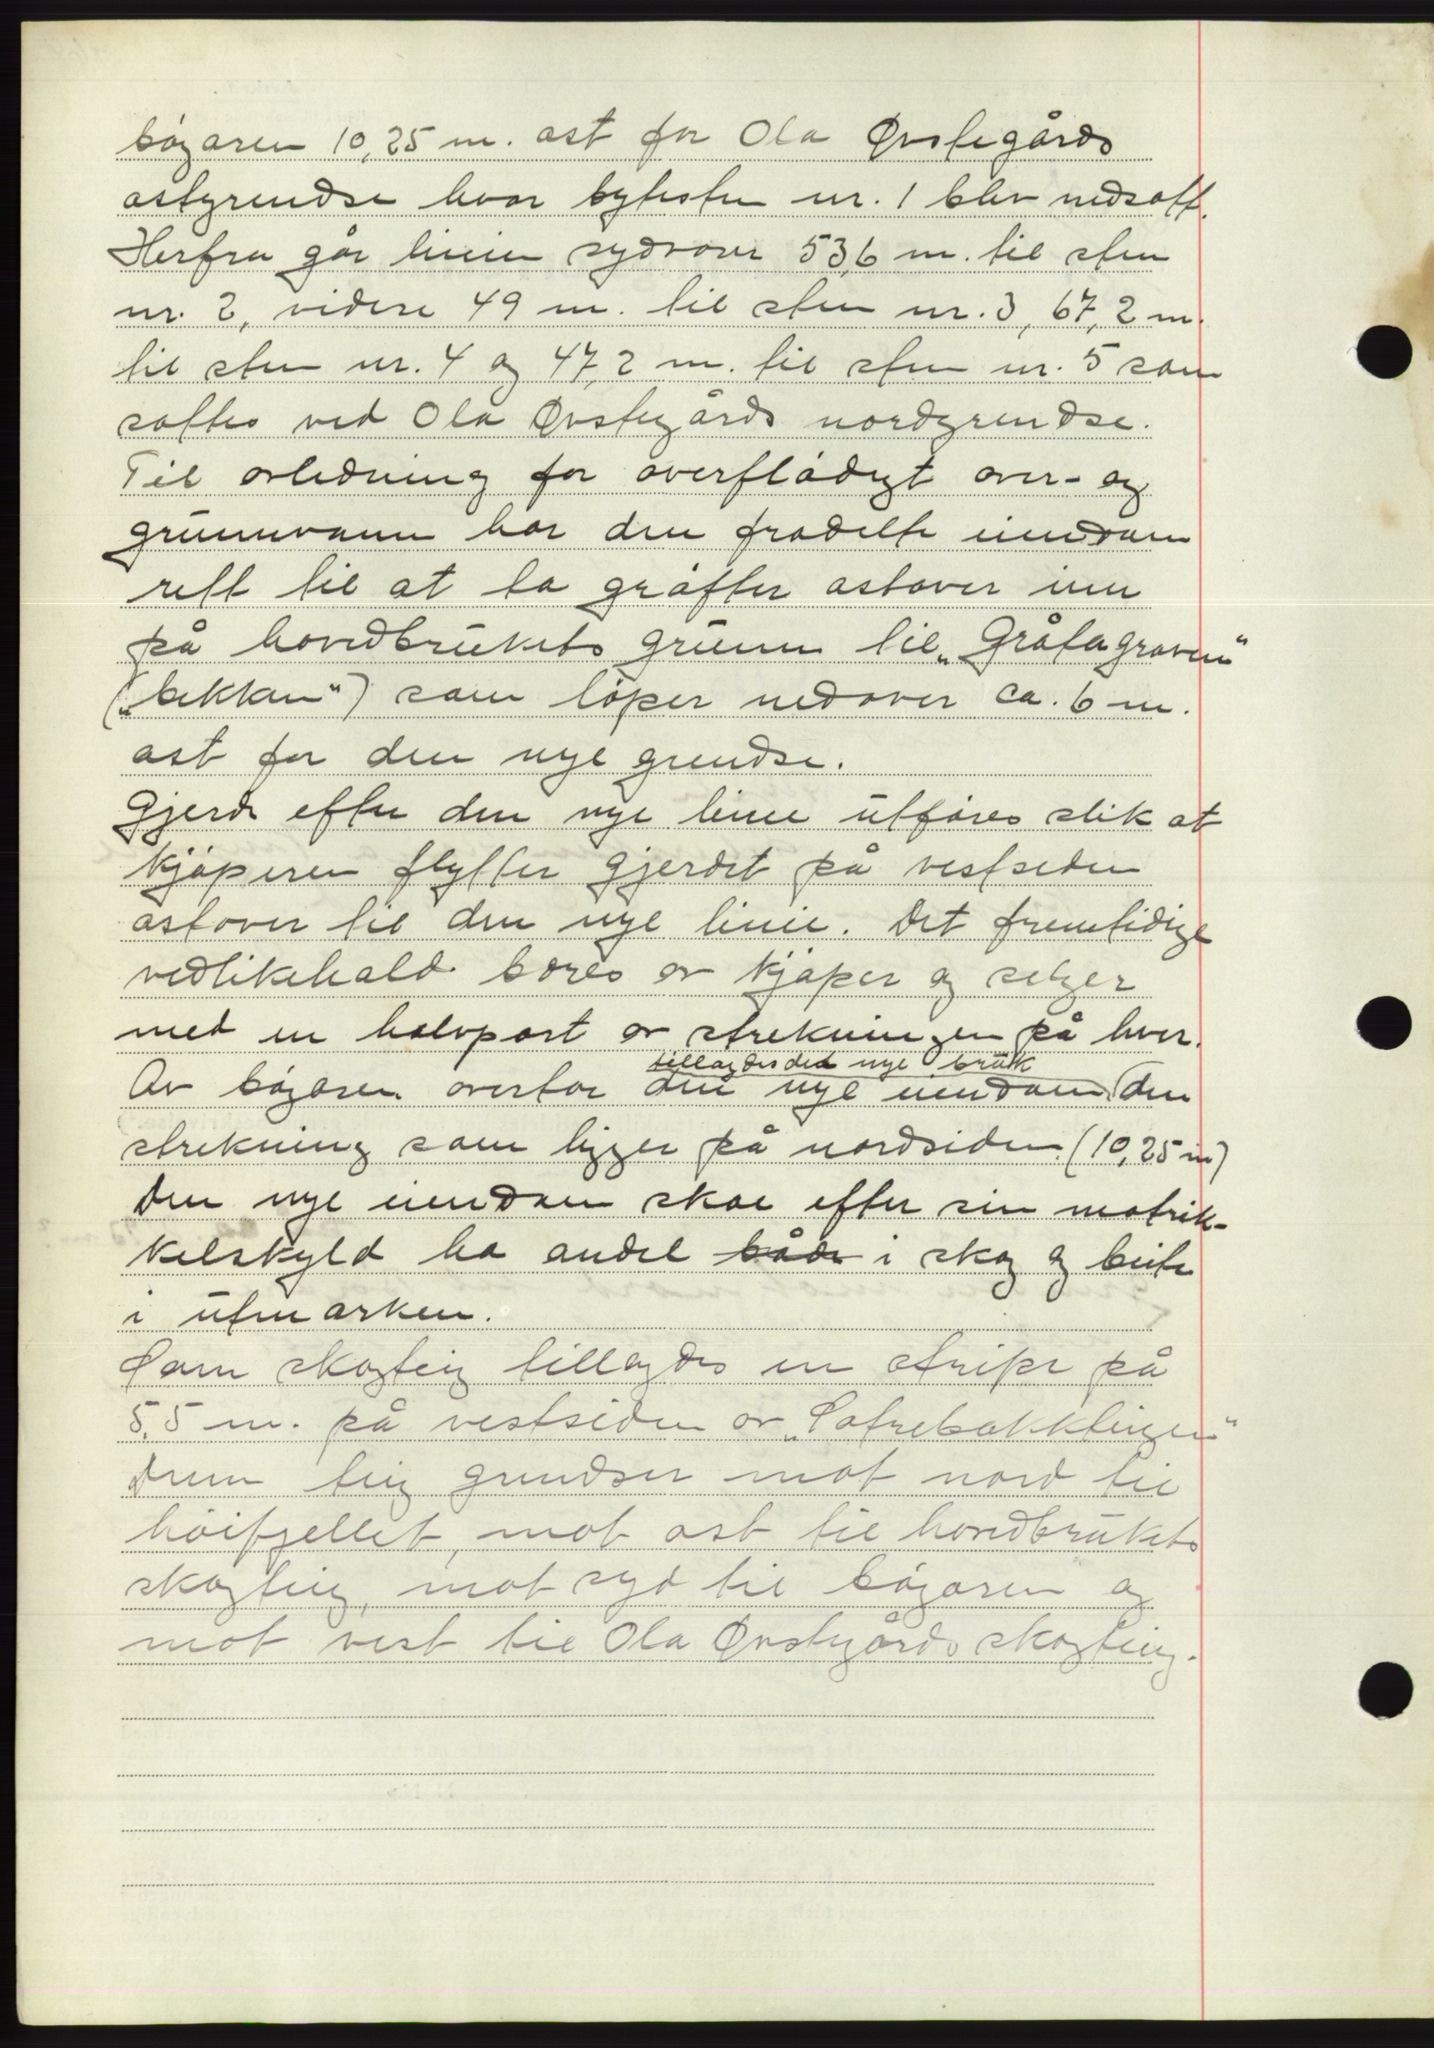 bøgaren 10,25 m. øst for Ola Øvstegårds
østgrendse hvor bytesten nr. 1 blev nedsatt.
Herfra går linien sydover 53,6 m. til sten
nr. 2, videre 49 m. til sten nr. 3, 67,2 m.
til sten nr. 4 og 47,2 m. til sten nr. 5 som
sattes ved Ola Øvstegårds nordgrendse.
Til avledning for overflødigt over- og
grunnvann har den fradelte eiendom
rett til at ta grøfter østover inn
på hovedbrukets grunn til „Gråfagraven“
(„bekken“) som løper nedover ca. 6 m.
øst for den nye grendse.
Gjerde efter den nye linie utføres slik at
kjøperen flytter gjerdet på vestsiden
østover til den nye linie. Det fremtidige
vedlikehold bæres av kjøper og selger
med en halvpart av strekningen på hver.
tillagdes det nye bruk
Av bøgaren overfor den nye eiendom den
strekning som ligger på nordsiden (10,25 m)
Den nye eiendom skal efter sin matrik-
kelskyld ha andel både i skog og beite
i utmarken.
Som skogteig tillagdes en stripe på
5,5 m. på vestsiden av „Sætrebakkteigen“
Denn teig grendser mot nord til
høifjellet, mot øst til hovedbrukets
skogteig, mot syd til bøgaren og
mot vest til Ola Øvstegårds skogteig.